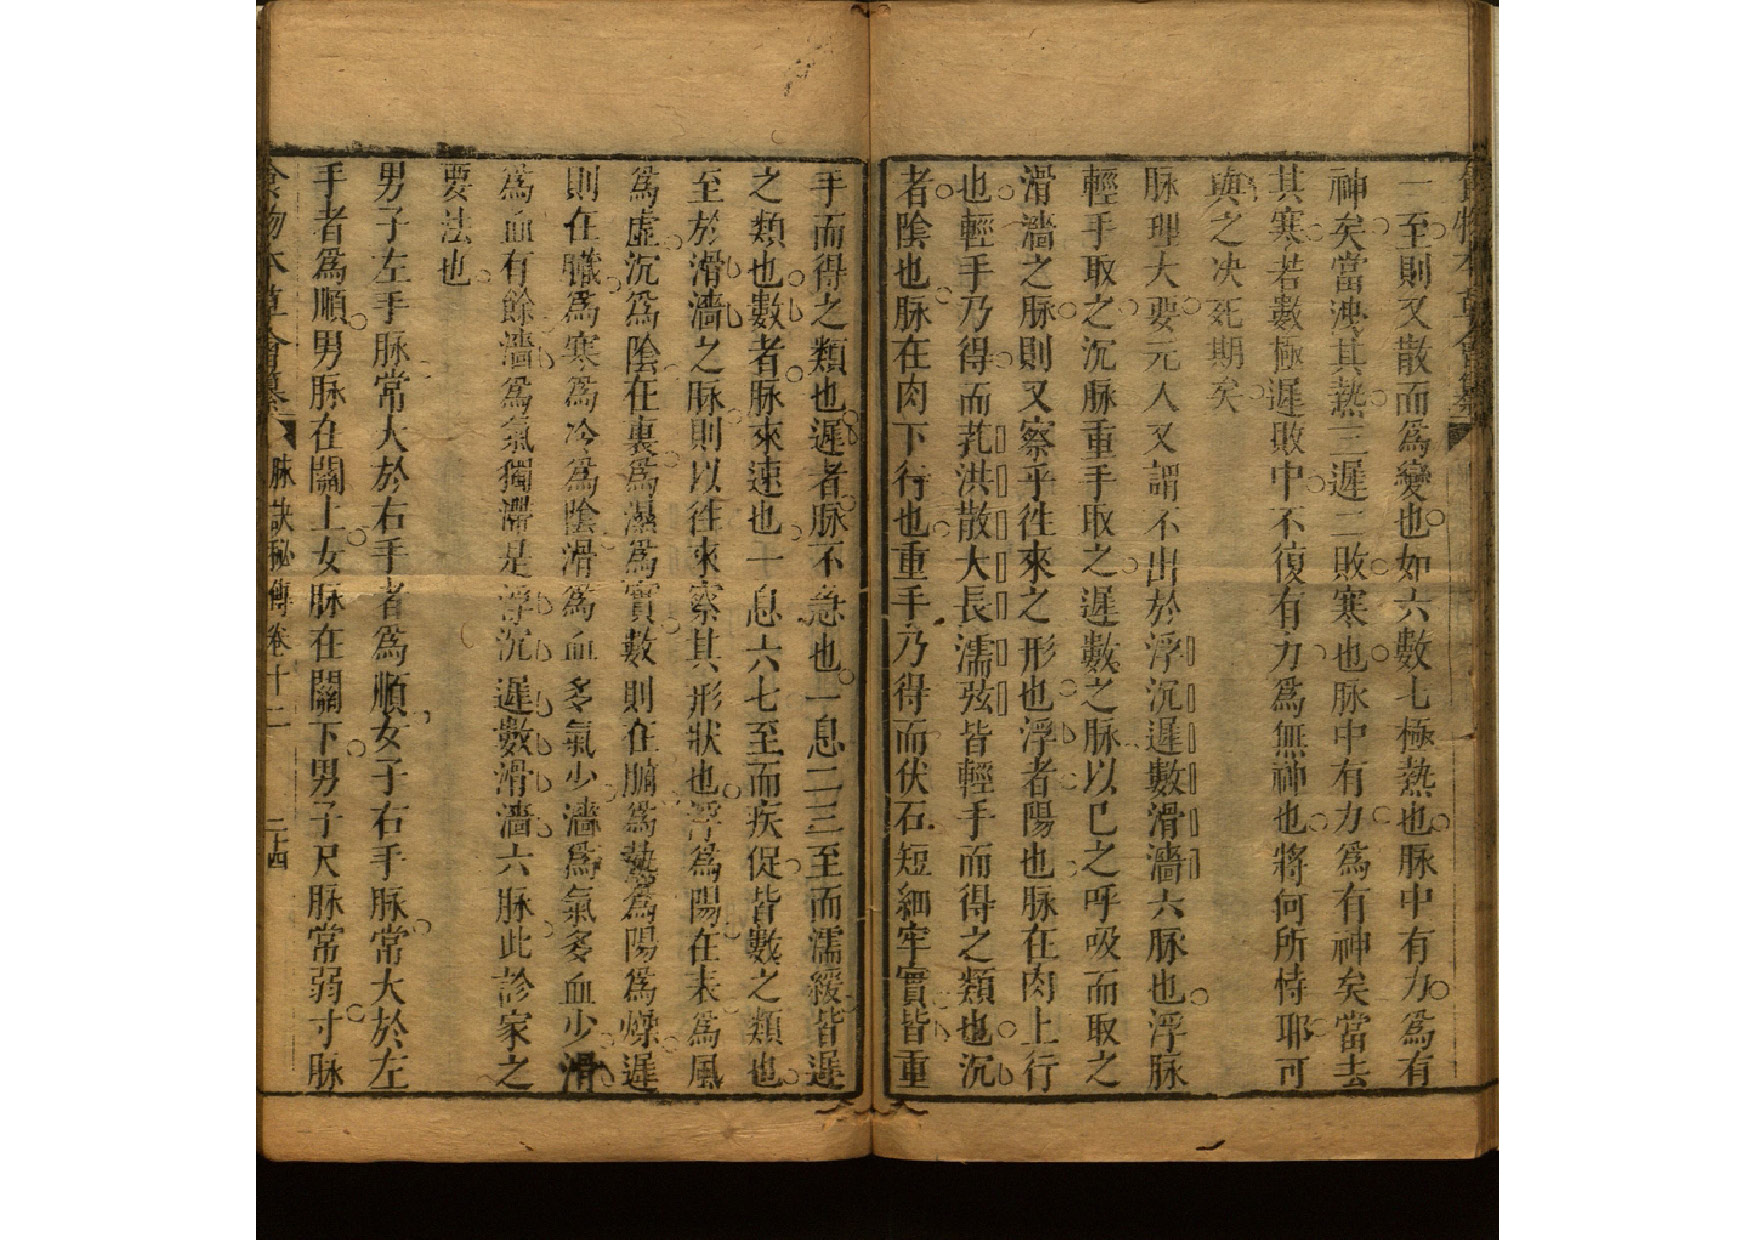 一至則又散而爲變也如六數七極熱也脉中有力爲有
神矣當洩其熱三遲二敗寒也脉中有力爲有神矣當去
其寒若數極遲敗中不復有力爲無神也將何所恃耶可
與之决死期矣
脉理大要元人又謂不出於浮沉遲數滑濇六脉也浮脉
輕手取之沉脉重手取之遲數之脉以己之呼吸而取之
滑濇之脉則又察乎徃來之形也浮者陽也脉在肉上行
也輕手乃得而芤洪散大長濡弦皆輕手而得之類也沉
者陰也脉在肉下行也重手乃得而伏石短細牢實皆重
手而得之類也遲者脉不急也一息二三至而濡緩皆遲
之類也數者脉來速也一息六七至而疾促皆數之類也
至於滑濇之脉則以徃來察其形狀也浮爲陽在表爲風
爲虛沉爲陰在裏爲濕爲實數則在腑爲熱爲陽爲燥遲
則在臟爲寒爲冷爲陰滑爲血多氣少濇爲氣多血少滑
爲血有餘濇爲氣獨滯是浮沉遲數滑濇六脉此診家之
要法也
男子左手脉常大於右手者爲順女子右手脉常大於左
手者爲順男脉在關上女脉在關下男子尺脉常弱寸脉
食物本草會纂 脉訣秘傳卷十二 二十四